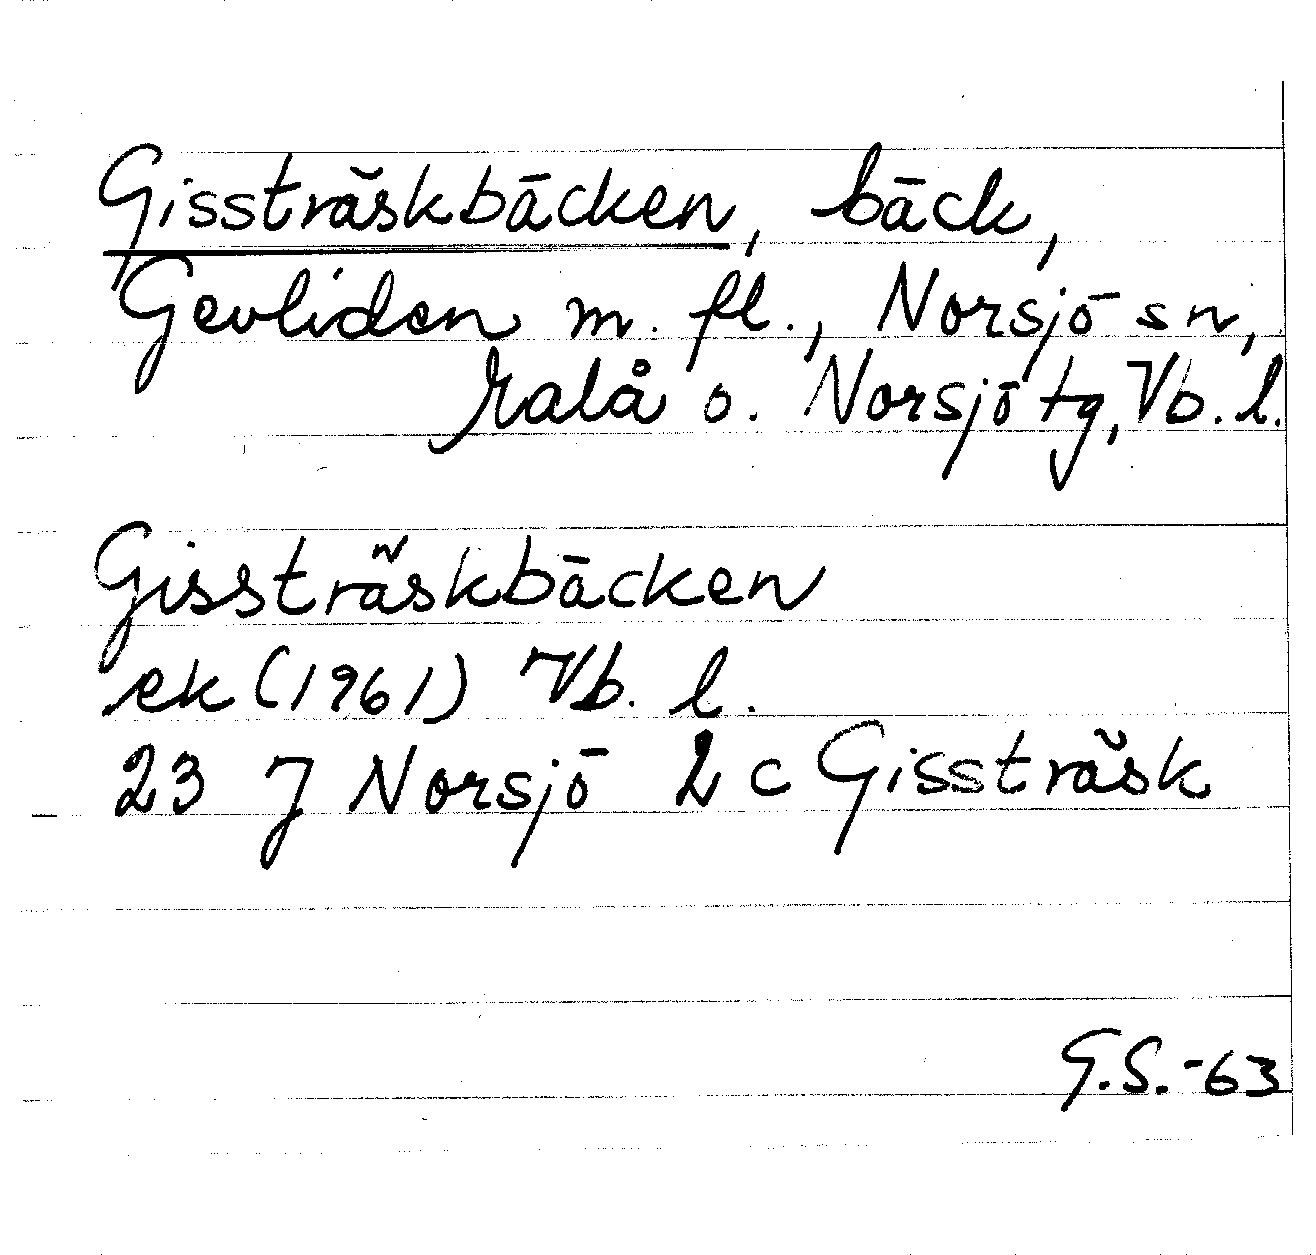 Gissträskbäcken, bäck,
Gevliden m. fl., Norsjö sn,
Malå o. Norsjö tg, Vb. l.
Gissträskbäcken
ek (1961) Vb. l.
23 J Norsjö 2 c Gissträsk
G.S.-63